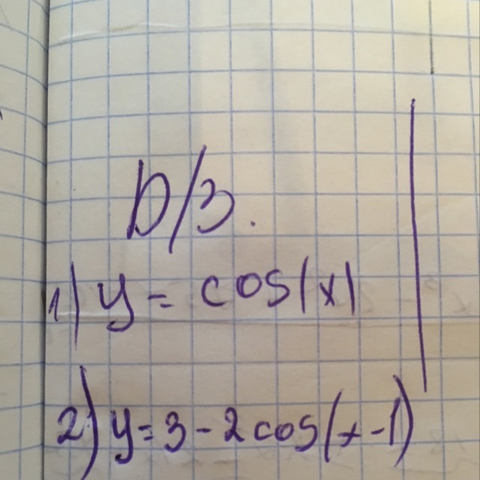 D/З.
1) y = cos|x|
2) y = 3 - 2cos(x - 1)